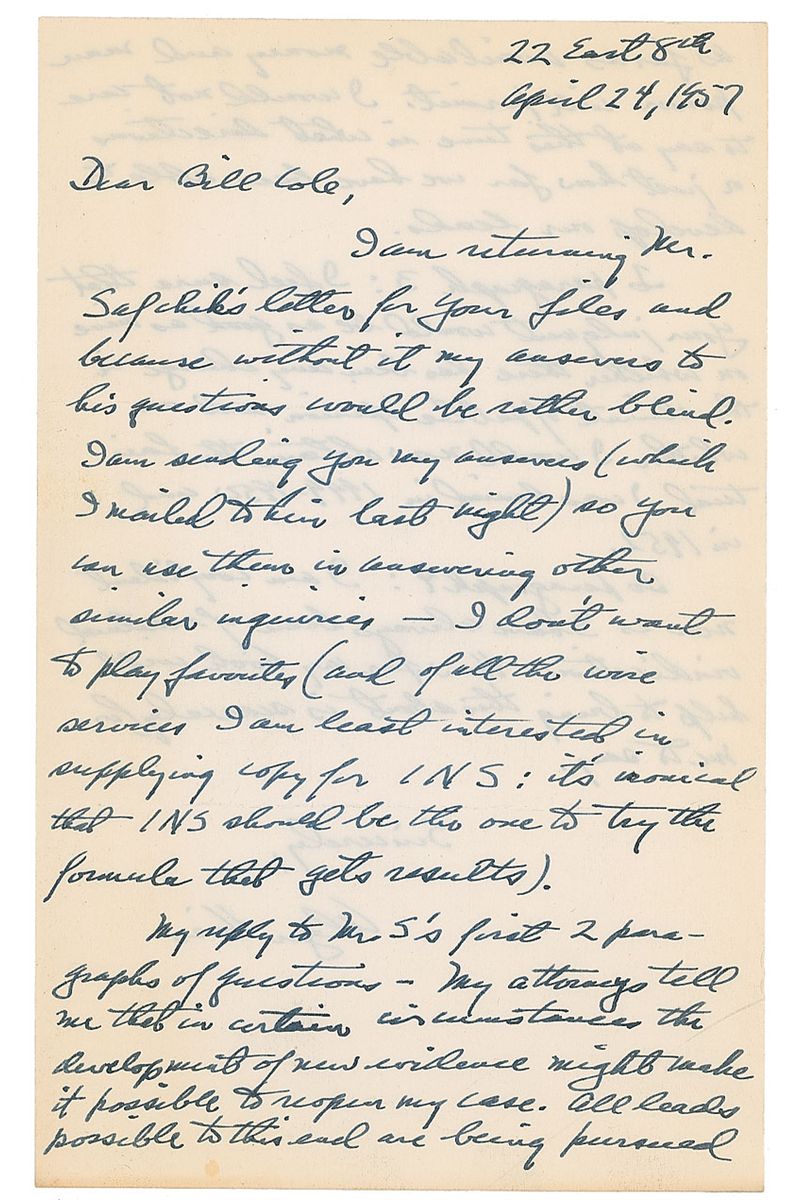 22 East 8th
April 24, 1957
Dear Bill Cole,
I am returning Mr.
letter for your files and
because without it my answers to
his questions would be rather blind.
I am sending you my answers (which
I mailed to him last night) so you
can use them in answering other
similar inquiries — I don't want
to play favorites (and of all the wire
services I am least interested in
supplying copy for INS: it's ironical
that INS should be the one to try the
formula that gets results).
My reply to Mr. S's first 2 para-
graphs of questions — My attorneys tell
me that in certain circumstances the
development of new evidence might make
it possible to reopen my case. All leads
possible to this end are being pursued